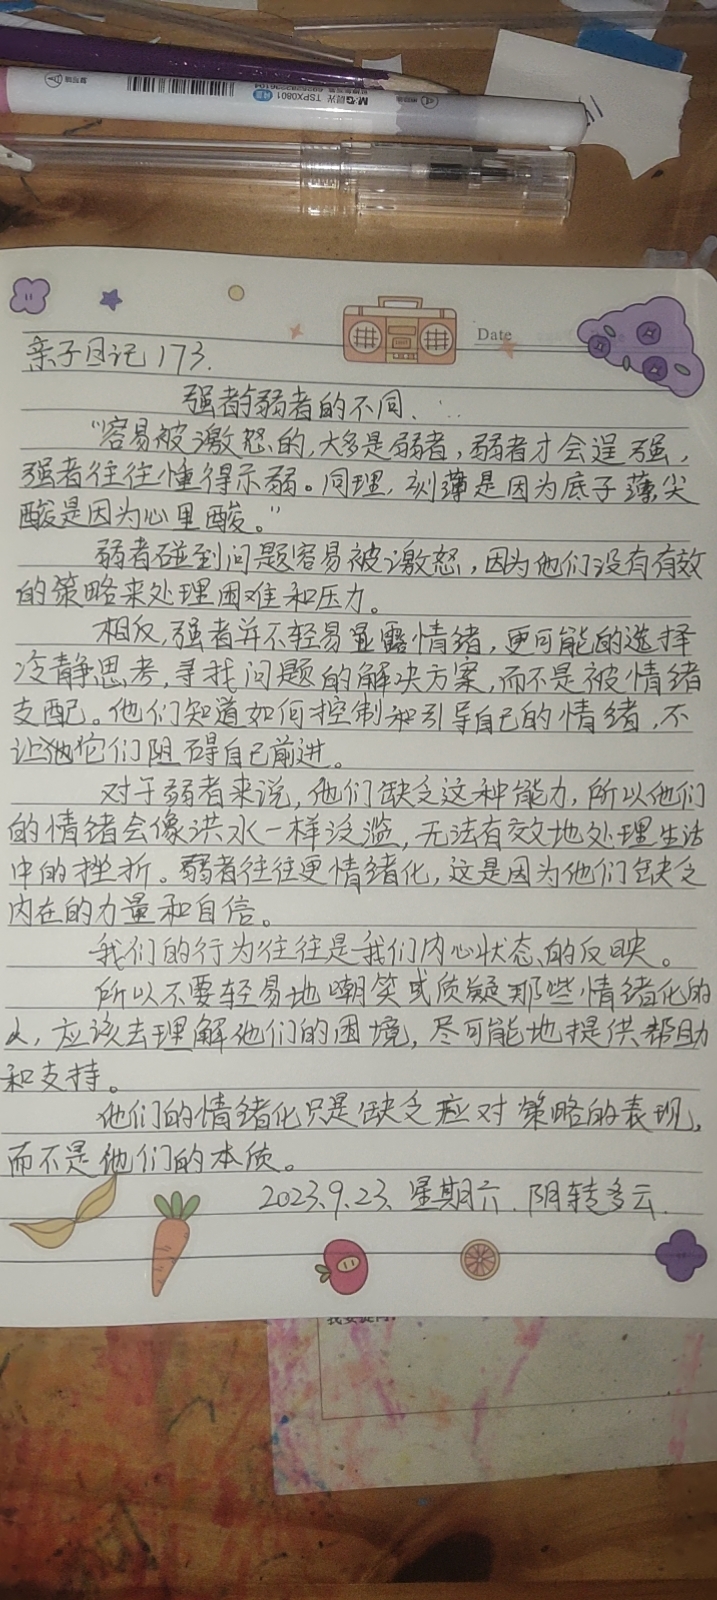 M&G晨光 TSPX0801
Date
亲子日记173.
强者与弱者的不同.
“容易被激怒的,大多是弱者,弱者才会逞强,
强者往往懂得示弱。同理,刻薄是因为底子薄,尖
酸是因为心里酸。”
弱者碰到问题容易被激怒,因为他们没有有效
的策略来处理困难和压力。
相反,强者并不轻易显露情绪,更可能的选择
冷静思考,寻找问题的解决方案,而不是被情绪
支配。他们知道如何控制和引导自己的情绪,不
让它们阻碍自己前进。
对于弱者来说,他们缺乏这种能力,所以他们
的情绪会像洪水一样泛滥,无法有效地处理生活
中的挫折。弱者往往更情绪化,这是因为他们缺乏
内在的力量和自信。
我们的行为往往是我们内心状态的反映。
所以不要轻易地嘲笑或质疑那些情绪化的
人,应该去理解他们的困境,尽可能地提供帮助
和支持。
他们的情绪化只是缺乏应对策略的表现,
而不是他们的本质。
2023.9.23.星期六.阴转多云.